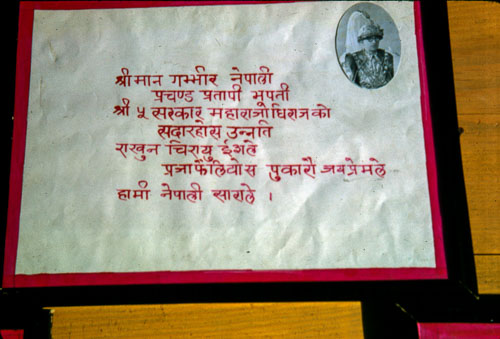 श्रीमान गम्भीर नेपाली
प्रचण्ड प्रतापी भूपती
श्री ५ सरकार महाराजाधिराजको
सदारहोस उन्नति
राखुन चिरायु ईशले
प्रजाफैलियोस पुकारौं जयप्रेमले
हामी नेपाली साराले ।